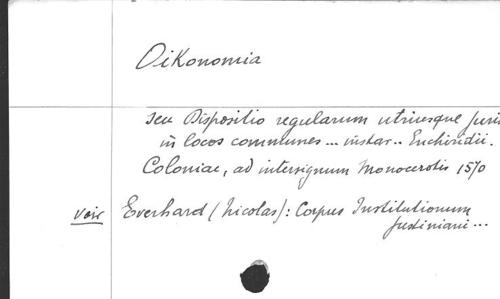 Oikonomia
seu Dispositio regularum utriusque Juris
in locos communes ... instar .. Enchiridii.
Coloniae, ad intersignum Monocerotis 1570
voir Everhard (Nicolas): Corpus Institutionum
Justiniani ...